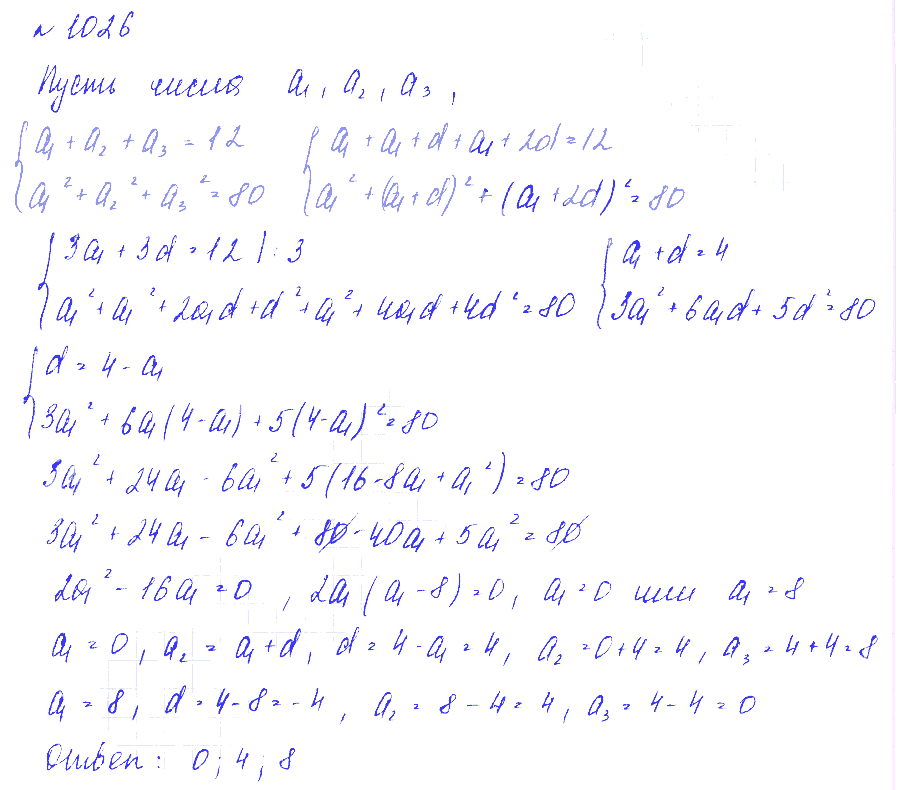 № 1026
Пусть числа a₁, a₂, a₃,
{ a₁ + a₂ + a₃ = 12 { a₁ + a₁ + d + a₁ + 2d = 12
a₁² + a₂² + a₃² = 80 a₁² + (a₁ + d)² + (a₁ + 2d)² = 80
{ 3a₁ + 3d = 12 | : 3 { a₁ + d = 4
a₁² + a₁² + 2a₁d + d² + a₁² + 4a₁d + 4d² = 80 3a₁² + 6a₁d + 5d² = 80
{ d = 4 - a₁
3a₁² + 6a₁(4 - a₁) + 5(4 - a₁)² = 80
3a₁² + 24a₁ - 6a₁² + 5(16 - 8a₁ + a₁²) = 80
3a₁² + 24a₁ - 6a₁² + 80 - 40a₁ + 5a₁² = 80
2a₁² - 16a₁ = 0, 2a₁(a₁ - 8) = 0, a₁ = 0 или a₁ = 8
a₁ = 0, a₂ = a₁ + d, d = 4 - a₁ = 4, a₂ = 0 + 4 = 4, a₃ = 4 + 4 = 8
a₁ = 8, d = 4 - 8 = -4, a₂ = 8 - 4 = 4, a₃ = 4 - 4 = 0
Ответ: 0; 4; 8